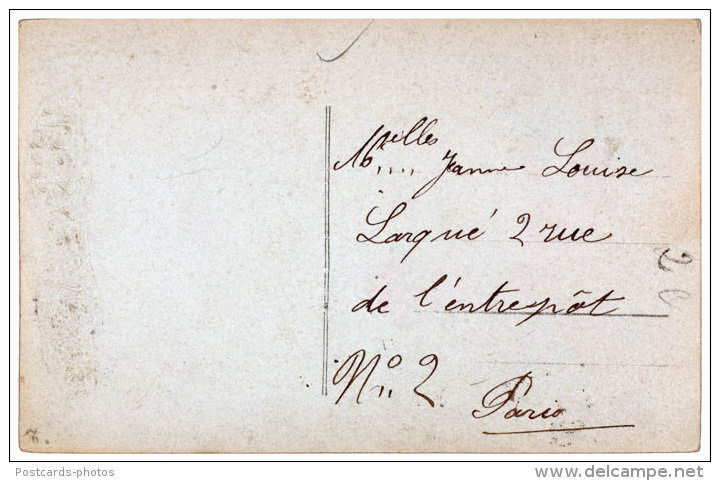 Melles Jeanne Louise
Larqué 2 rue
de l'entrepôt
No 2
Paris
Postcards-photos
www.delcampe.net